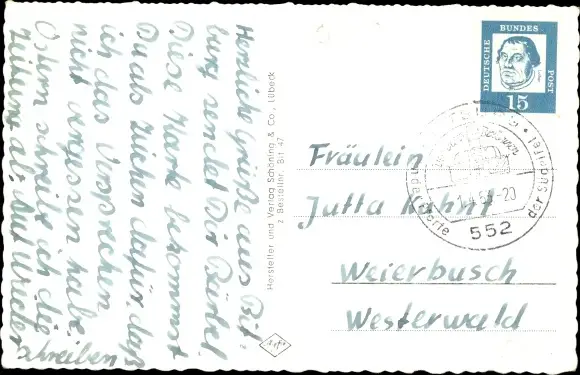 Herzliche Grüße aus Bit-
burg sendet Dir Bärbel.
Diese Karte bekommst
Du als Zeichen dafür, daß
ich das Versprechen
nicht vergessen habe.
Ostern schreibe ich die
Zeitung ab. Mut
schreiben
Hersteller und Verlag Schöning & Co., Lübeck
z Bestellnr. Bit 47
DEUTSCHE
BUNDES
POST
15
der Südeifel
552
Fräulein
Jutta Kahnt
Weierbusch
Westerwald